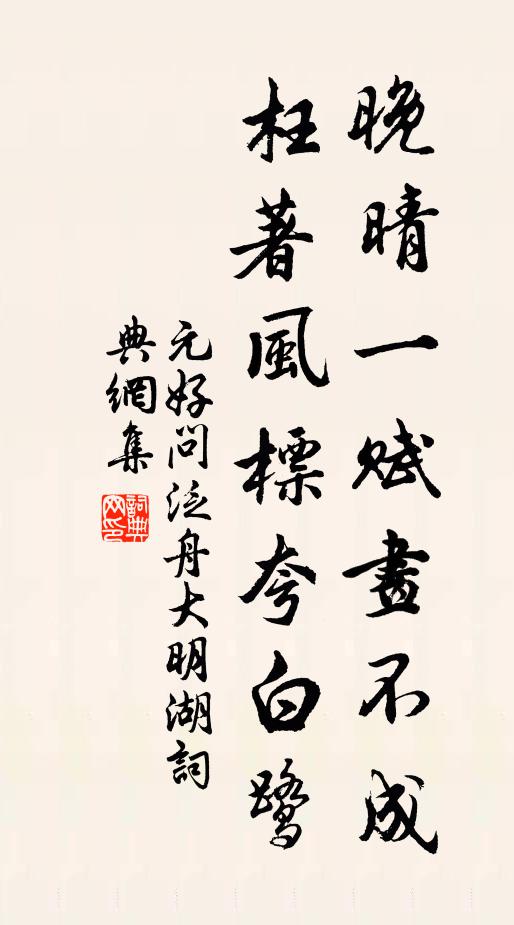 晚晴一賦畫不成
枉著風標夸白鷺
元好問泛舟大明湖詞
典網集
詞典網印